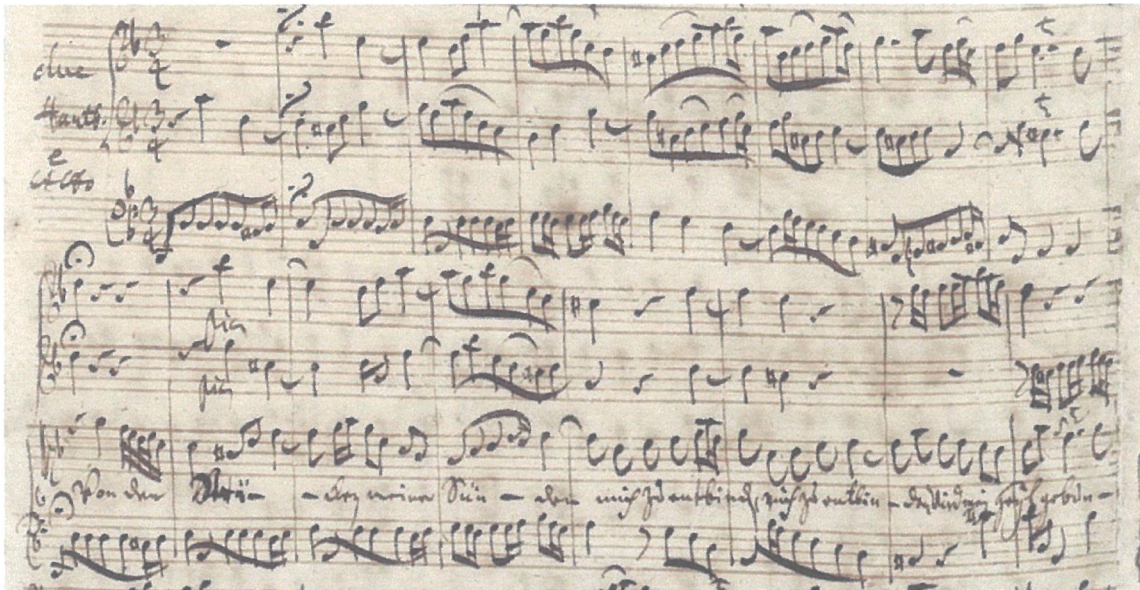 due
Hautb.
e
Alto
pia
pia
Von den Stri- -cken meiner Sün - den mich zu entbinden, mich zu entbin - den wird mein Heyl gebun-